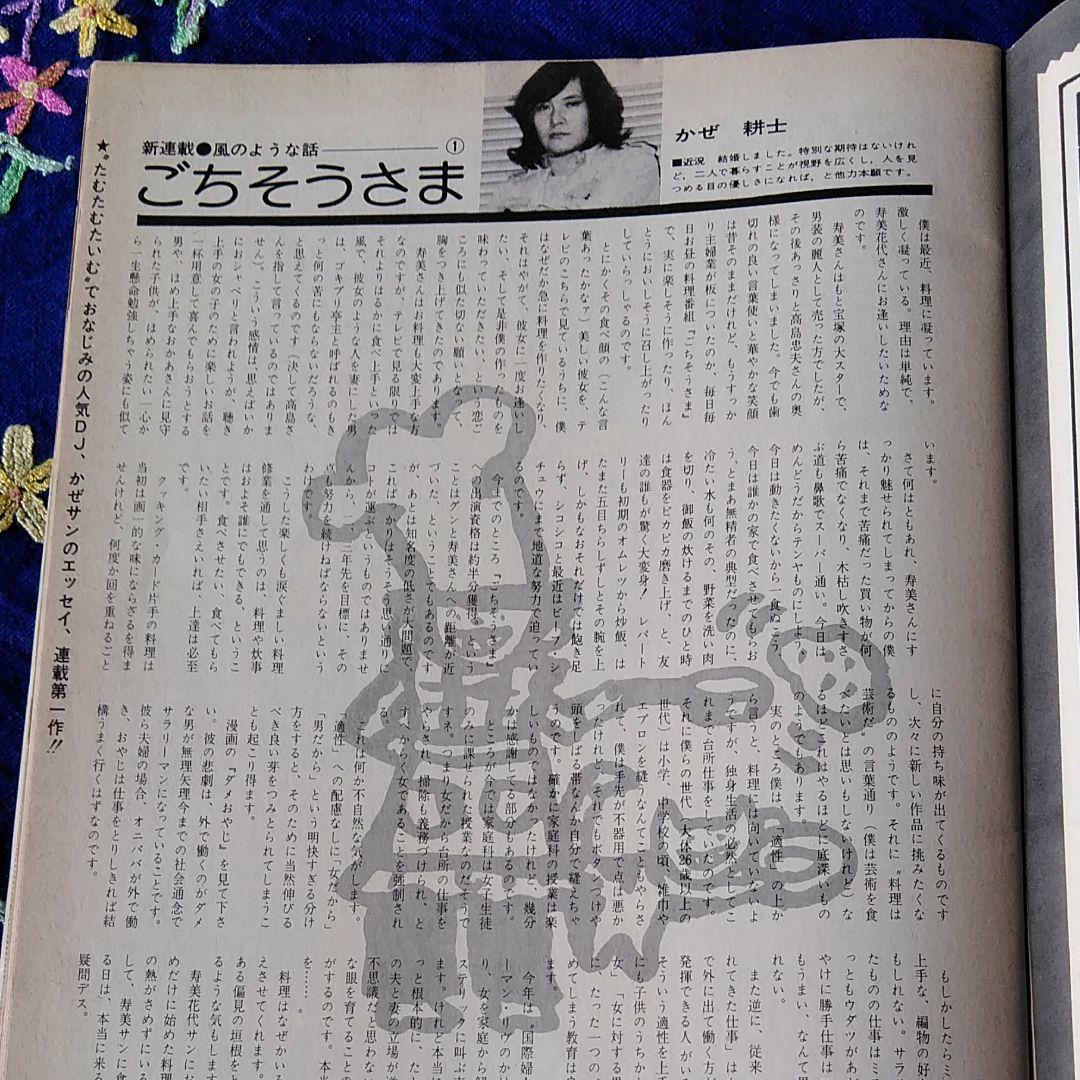 新連載●風のような話――①
ごちそうさま
かぜ 耕士
■近況 結婚しました。特別な期待はないけれ
ど、二人で暮らすことが視野を広くし、人を見
つめる目の優しさになれば、と他力本願です。
★“たむたむたいむ”でおなじみの人気DJ、かぜサンのエッセイ、連載第一作!!
僕は最近、料理に凝っています。
激しく凝っている。理由は単純で、
寿美花代さんにお逢いしたいためな
のです。
寿美さんはもと宝塚の大スターで、
男装の麗人として売った方でしたが、
その後あっさりと高島忠夫さんの奥
様になってしまいました。今でも歯
切れの良い言葉使いと華やかな笑顔
は昔そのままだけれど、もうすっか
り主婦業が板についたのか、毎日毎
日お昼の料理番組『ごちそうさま』
で、実に楽しそうに作ったり、ほん
とうにおいしそうに召し上がったり
していらっしゃるのです。
とにかくその食べ顔の（こんな言
葉あったかなァ）美しい彼女を、テ
レビのこちらで見ているうちに、僕
はなぜだか急に料理を作りたくなり、
それはやがて、彼女に一度お逢いし
たい、そして是非僕の作ったものを
味わっていただきたい、という恋ご
ころにも似た切ない願いとなって、
胸をつき上げてきたのであります。
寿美さんはお料理も大変上手な方
なのですが、テレビで見る限りでは
それよりはるかに食べ上手といった
風で、彼女のような人を妻にした男
は、ゴキブリ亭主と呼ばれるのもき
っと何の苦にもならないだろうな、
と思えてくるのです（決して高島さ
んを指して言っているのではありま
せん）。こういう感情は、思えばけい
におシャベリと言われようが、聴き
上手の女の子のために楽しいお話を
一杯用意して喜んでもらおうとする
男や、ほめ上手なおかあさんに見守
られた子供が、ほめられたい一心か
ら一生懸命勉強しちゃう姿にも似て
います。
さて何はともあれ、寿美さんにす
っかり魅せられてしまってからの僕
は、それまで苦痛だった買い物が何
ら苦痛でなくなり、木枯し吹きすさ
ぶ道も鼻歌でスーパー通い。今日は
めんどうだからテンヤものにしよう、
今日は動きたくないから一食ぬこう、
今日は誰かの家で食べさせてもらお
う、とまあ無精者の典型だったのに、
冷たい水も何のその、野菜を洗い肉
を切り、御飯の炊けるまでのひと時
は食器をピカピカ磨き上げ、と、友
達の誰もが驚く大変身！ レパート
リーも初期のオムレツから炒飯、は
たまた五目ちらしずしとその腕を上
げ、しかもなおそれだけでは飽き足
らず、シコシコと最近はビーフ・シ
チュウにまで地道な努力で迫ってい
るのです。
今までのところ『ごちそうさま』
への出演資格は約半分獲得、という
ことはグンと寿美さんへの距離が近
づいた、ということでもあるのです
が、あとは知名度の低さが大問題で、
こればっかりはそうそう思い通りに
コトが運ぶというものではありませ
んから、二三年先を目標に、その
点も努力を続けねばならないという
わけです。
こうした楽しくも涙ぐましい料理
修業を通して思うのは、料理や炊事
はおよそ誰にでもできる、というこ
とです。食べさせたい、食べてもら
いたい相手さえいれば、上達は必至
です。
クッキング・カード片手の料理は
当初は画一的な味にならざるを得ま
せんけれど、何度か回を重ねるごと
に自分の持ち味が出てくるものです
し、次々に新しい作品に挑みたくな
るもののようです。それに〝料理は
芸術だ〟の言葉通り（僕は芸術を食
べたいとは思いもしないけれど）な
るほどこれはやるほどに底深いもの
のようでもあります。
実のところ僕は、「適性」の上か
ら言うと、料理には向いていないよ
うですが、独身生活の必然としてこ
れまで台所仕事をしていたのです。
それに僕らの世代（大体26歳以上の
世代）は小学、中学校の頃、雑巾や
エプロンを縫うなんてこともやらさ
れて、僕は手先が不器用で点は悪か
ったけれど、それでもボタンつけや
頭をしばる帯なんか自分で縫えちゃ
うのです。確かに家庭科の授業は楽
しいものではなかったけれど、幾分
かは感謝してる部分もあるのです。
ところが今では家庭科は女子生徒
のみに課せられた授業なのだそうで
すネ。つまり女だから台所の仕事を
やらされ、掃除も義務づけられ、と
すべからく女であることを強制され
る。
これは何か不自然な気がします。
「適性」への配慮なしに「女だから」
「男だから」という明快すぎる分け
方をすると、そのために当然伸びる
べき良い芽をつみとられてしまうこ
とも起こり得ます。
漫画の『ダメおやじ』を見て下さ
い。彼の悲劇は、外で働くのがダメ
な男が無理矢理今までの社会通念で
サラリーマンになっていることです。
彼ら夫婦の場合、オニババが外で働
き、おやじは仕事をとりしきれば結
構うまく行くはずなのです。
もしかしたらミ
上手な、編物の好
もしれない。サラ
たものの仕事はミ
っともウダツがあ
やけに勝手仕事は
もうまい、なんて男
れない。
また逆に、従来「
れてきた仕事」は
で外に出て働く方が
発揮できる人がい
そういう適性を上手
にも子供のうちから
「女」に対する男
に、たった一つの
めてしまう教育は
ます。
今年は〝国際婦人
ーマン・リブのかけ
り、女を家庭から解
ステリックに叫ぶ声
ます。けれど本当に
っと根本的に、たと
の夫と妻の立場が逆
不思議だと思わない
な眼を育てることの
がするのです。本当
を……。
料理はなぜかいろ
えさせてくれます。
ある偏見の垣根をと
るような気もします
寿美花代サンに食
めだけに始めた料理
の熱がさめずにいる
して、寿美サンに食
る日は、本当に来る
疑問デス。